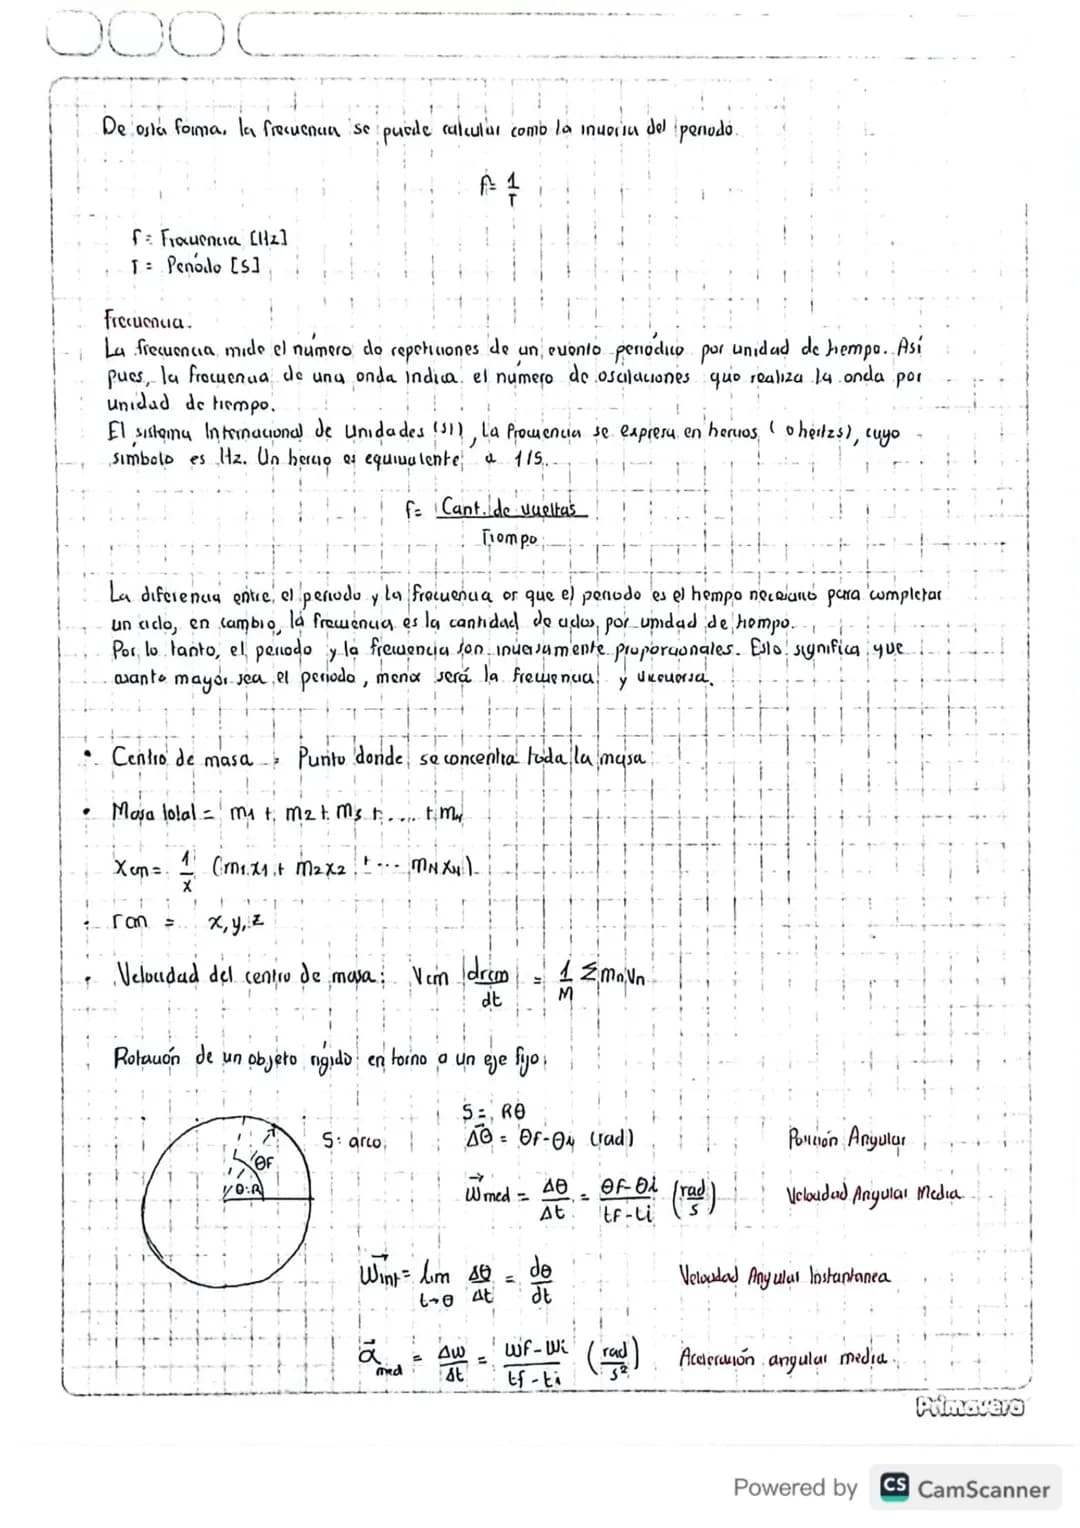 De esta forma, la frecuencia se puede calcular como la inversa del periodo.
f= 1/T
f= Frecuencia [Hz]
T= Periódo [S]
Frecuencia.
La frecuencia mide el número de repeticiones de un evento periódico por unidad de tiempo. Así
pues, la frecuencia de una onda indica el número de oscilaciones que realiza la onda por
unidad de tiempo.
El sistema Internacional de Unidades (SI), La frecuencia se expresa en hercios (o hertzs), cuyo
simbolo es Hz. Un hercio es equivalente a 1/S.
f= Cant. de vueltas / Tiempo
La diferencia entre el periodo y la frecuencia or que el periodo es el tiempo necesario para completar
un ciclo, en cambio, la frecuencia es la cantidad de ciclos por unidad de tiempo.
Por lo tanto, el periodo y la frecuencia son inversamente proporcionales. Esto significa que
cuanto mayor sea el periodo, menor será la frecuencia y viceversa.
• Centro de masa = Punto donde se concentra toda la masa
• Masa total = m1 + m2 + m3 + .... + mN
Xcm = 1/x (m1.x1 + m2x2 + ... mNxN)
• rcm = x, y, z
• Velocidad del centro de masa: Vcm drcm/dt = 1/M Σ mnVn
Rotación de un objeto rígido en torno a un eje fijo:
S = Rθ
S: arco. Δθ⃗ = θf-θi (rad) Posición Angular
θf
θi
ω⃗med = Δθ/Δt = θf-θi/tf-ti (rad/s) Velocidad Angular Media
ω⃗int = Lim t→0 Δθ/Δt = dθ/dt Velocidad Angular Instantanea
α⃗med = Δω/Δt = ωf-ωi/tf-ti (rad/s²) Aceleración angular media.
Primavera
Powered by CS CamScanner